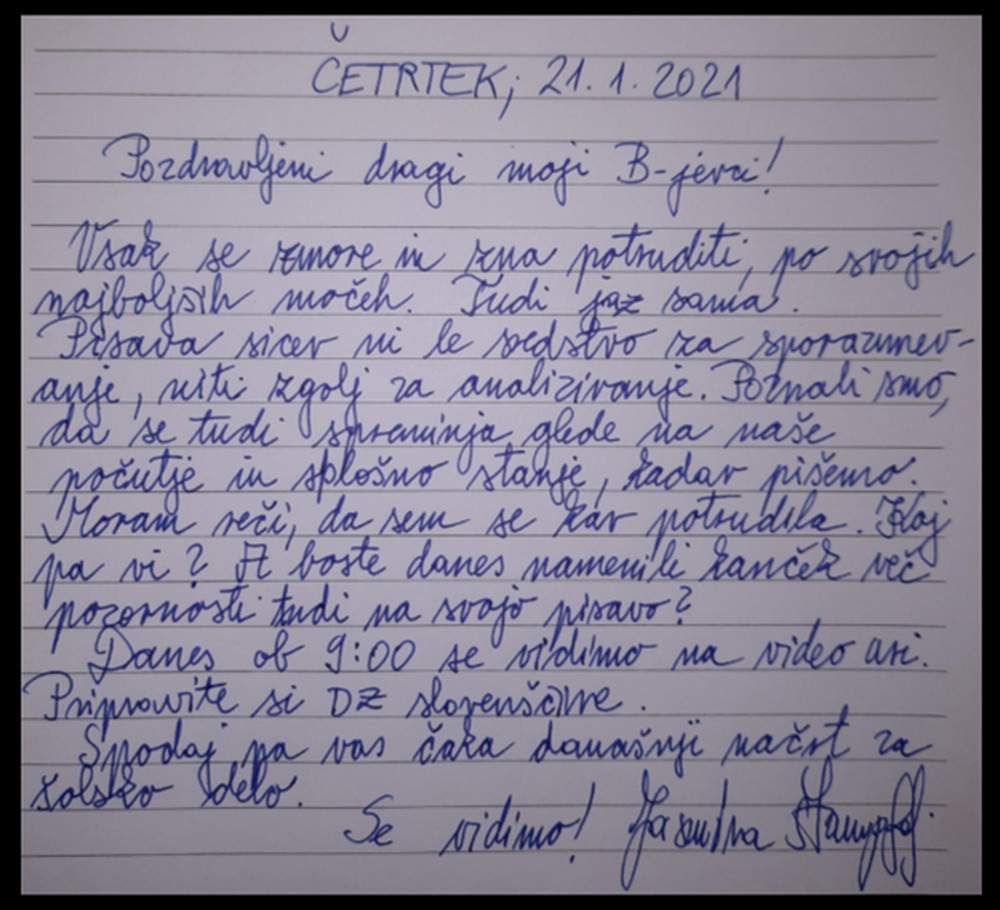 ČETRTEK, 21. 1. 2021
Pozdravljeni dragi moji B-jevci!
Vsak se zmore in zna potruditi, po svojih
najboljših močeh. Tudi jaz sama.
Pisava sicer ni le sredstvo za sporazumev-
anje, niti zgolj za analiziranje. Poznali smo,
da se tudi spreminja glede na naše
počutje in splošno stanje, kadar pišemo.
Moram reči, da sem se kar potrudila. Kaj
pa vi? A boste danes namenili kanček več
pozornosti tudi na svojo pisavo?
Danes ob 9:00 se vidimo na video uri.
Pripravite si DZ slovenščine.
Spodaj pa vas čaka današnji načrt za
šolsko delo.
Se vidimo! Jasmina